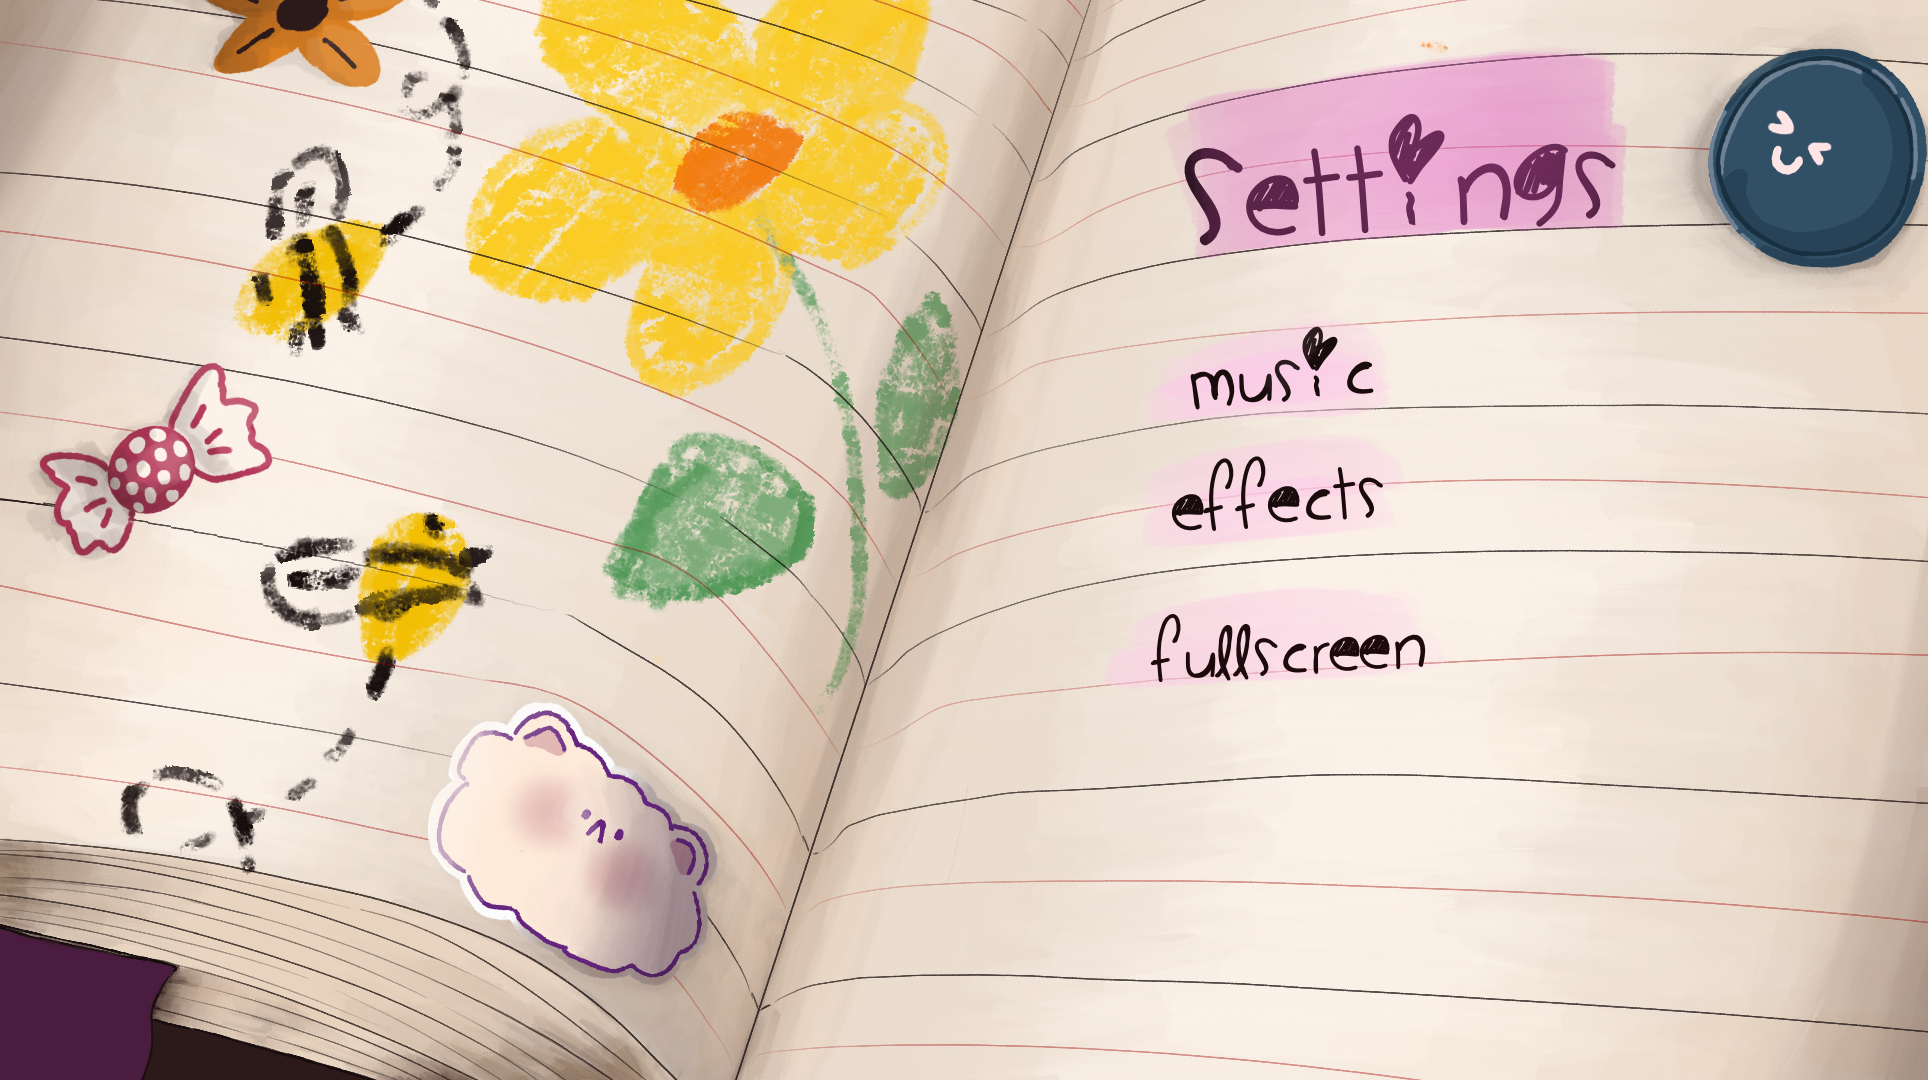 Settings
music
effects
fullscreen